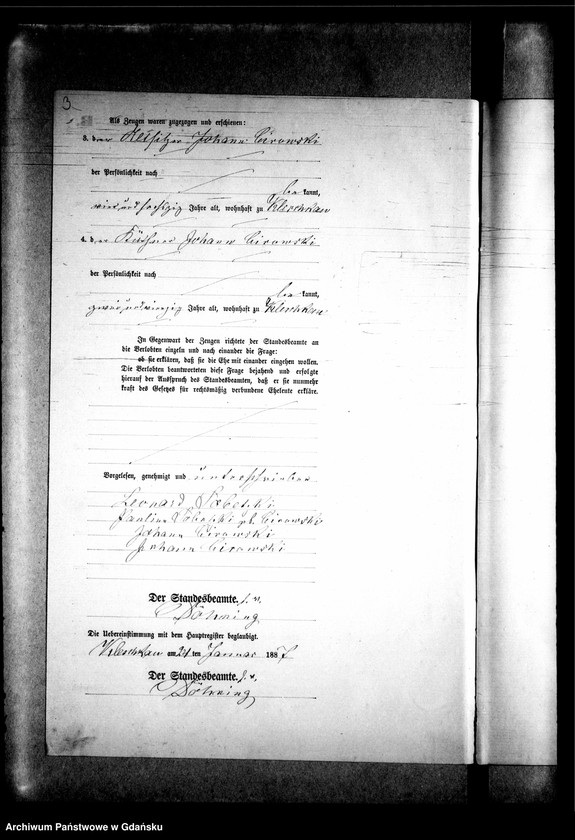 3
Als Zeugen waren zugezogen und erschienen:
3. der Johann Cirowski
der Persönlichkeit nach
be kannt,
vierundsechszig Jahre alt, wohnhaft zu Kleschkau
4. der Johann Cirowski
der Persönlichkeit nach
be kannt,
zweiundvierzig Jahre alt, wohnhaft zu Kleschkau
In Gegenwart der Zeugen richtete der Standesbeamte an
die Verlobten einzeln und nach einander die Frage:
ob sie erklären, daß sie die Ehe mit einander eingehen wollen.
Die Verlobten beantworteten diese Frage bejahend und erfolgte
hierauf der Ausspruch des Standesbeamten, daß er sie nunmehr
kraft des Gesetzes für rechtsmäßig verbundene Eheleute erkläre.
Vorgelesen, genehmigt und unterschrieben
Leonard Sobetzki
Paulina Sobetzki gb. Cirowski
Johann Cirowski
Johann Cirowski
Der Standesbeamte. J. V.
Döhring
Die Uebereinstimmung mit dem Hauptregister beglaubigt.
Kleschkau am 24 ten Januar 1887
Der Standesbeamte. J. V.
Döhring
Archiwum Państwowe w Gdańsku